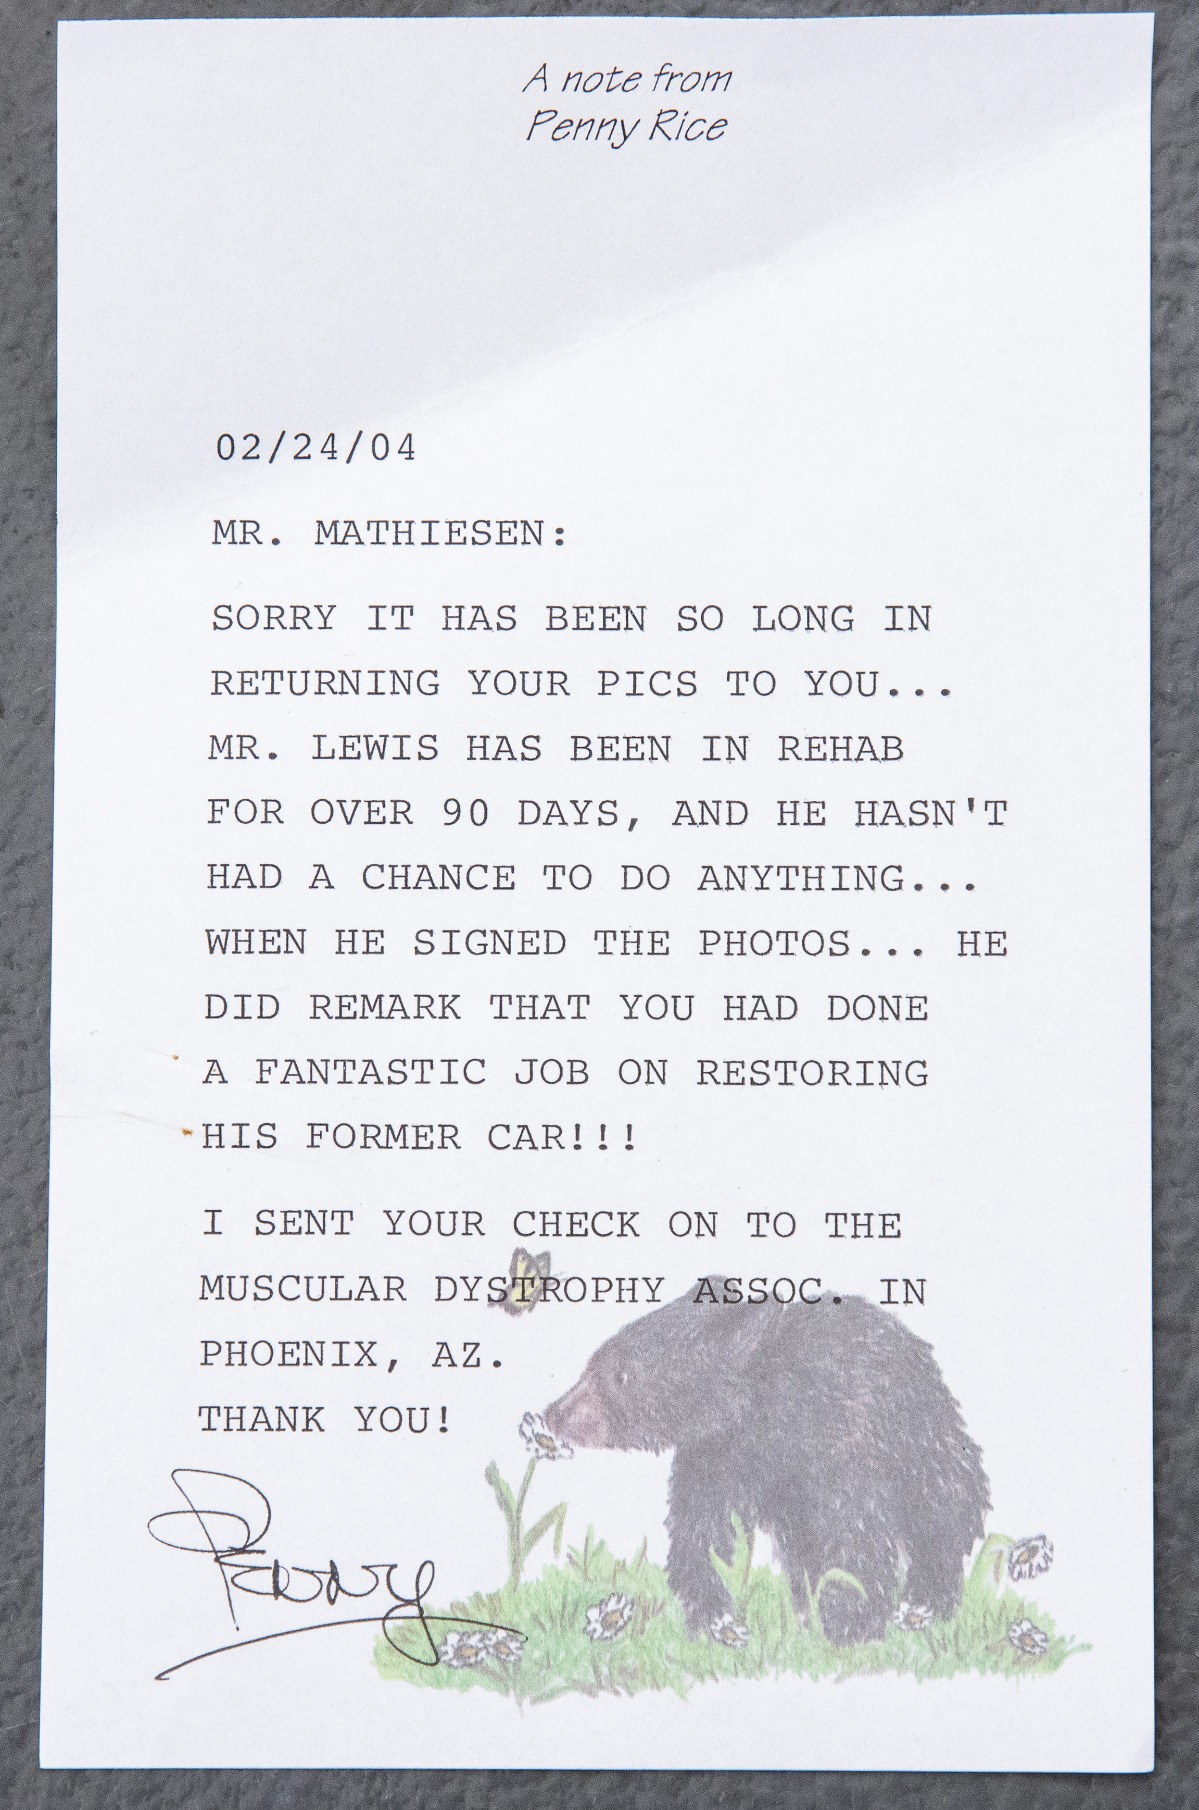 A note from
Penny Rice
02/24/04
MR. MATHIESEN:
SORRY IT HAS BEEN SO LONG IN
RETURNING YOUR PICS TO YOU...
MR. LEWIS HAS BEEN IN REHAB
FOR OVER 90 DAYS, AND HE HASN'T
HAD A CHANCE TO DO ANYTHING...
WHEN HE SIGNED THE PHOTOS... HE
DID REMARK THAT YOU HAD DONE
A FANTASTIC JOB ON RESTORING
HIS FORMER CAR!!!
I SENT YOUR CHECK ON TO THE
MUSCULAR DYSTROPHY ASSOC. IN
PHOENIX, AZ.
THANK YOU!
Penny